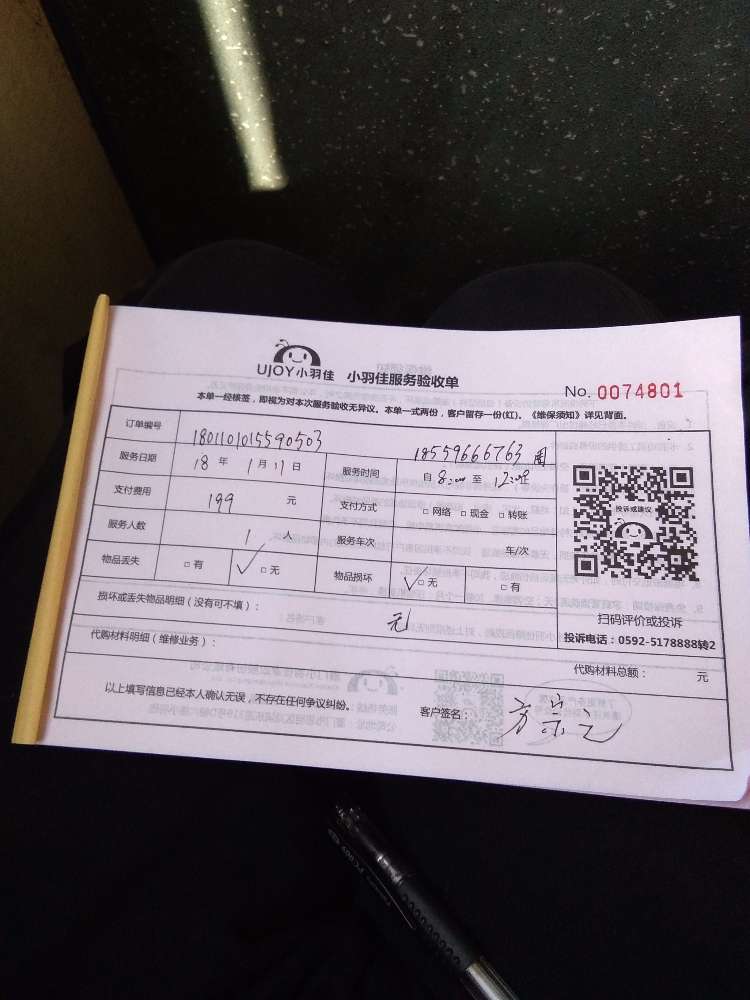 UJOY小羽佳 小羽佳服务验收单
No. 0074801
本单一经核签，即视为对本次服务验收无异议。本单一式两份，客户留存一份(红)。《维保须知》详见背面。
订单编号 1801101015590503 18559666763 周
服务日期 18 年 1 月 11 日 服务时间 自 8:00 至 12:00 止
支付费用 199 元 支付方式 □ 网络 □ 现金 □ 转账
服务人数 1 人 服务车次 车/次
物品丢失 □ 有 ✓□ 无 物品损坏 ✓□ 无 □ 有
投诉或建议
扫码评价或投诉
投诉电话：0592-5178888转2
损坏或丢失物品明细（没有可不填）： 无
代购材料明细（维修业务）： 代购材料总额： 元
以上填写信息已经本人确认无误，不存在任何争议纠纷。 客户签名：